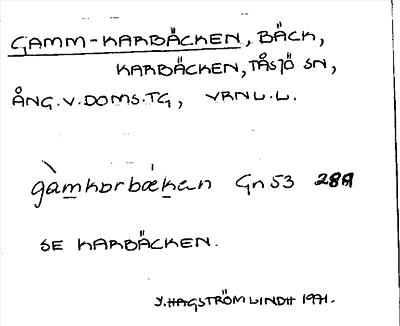 GAMM-KARBÄCKEN, BÄCK,
KARBÄCKEN, TÅSJÖ SN,
ÅNG.V.DOMS.TG, VRNL.L.
gàmkorbækan Gn53 288
SE KARBÄCKEN.
Y. HAGSTRÖM LINDH 1971.